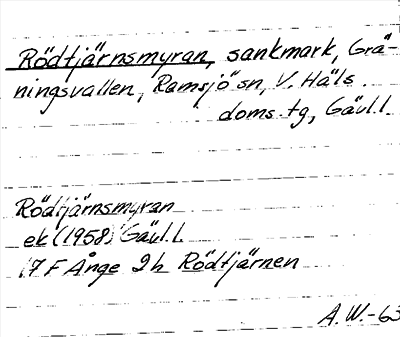 Rödtjärnsmyran, sankmark, Grä-
ningsvallen, Ramsjö sn, V. Häls.
doms. tg, Gävl.l.
Rödtjärnsmyran
ek (1958) Gävl.l.
17 F Ånge 2h Rödtjärnen
A.W.-63